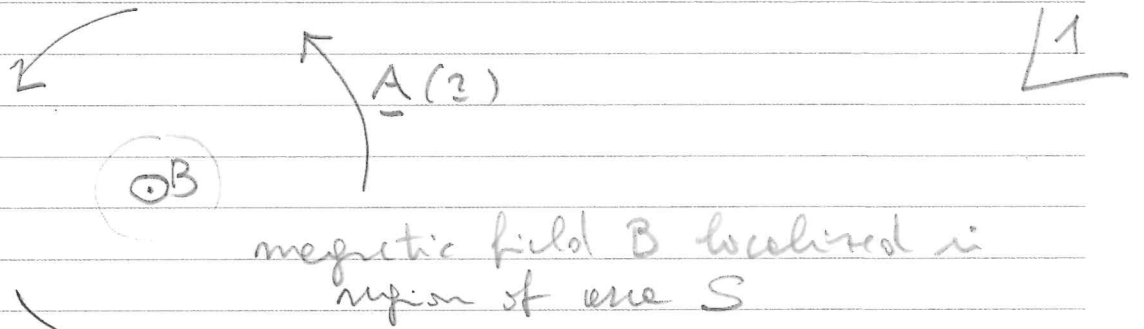 1
A (r)
B
magnetic field B localized in
region of area S